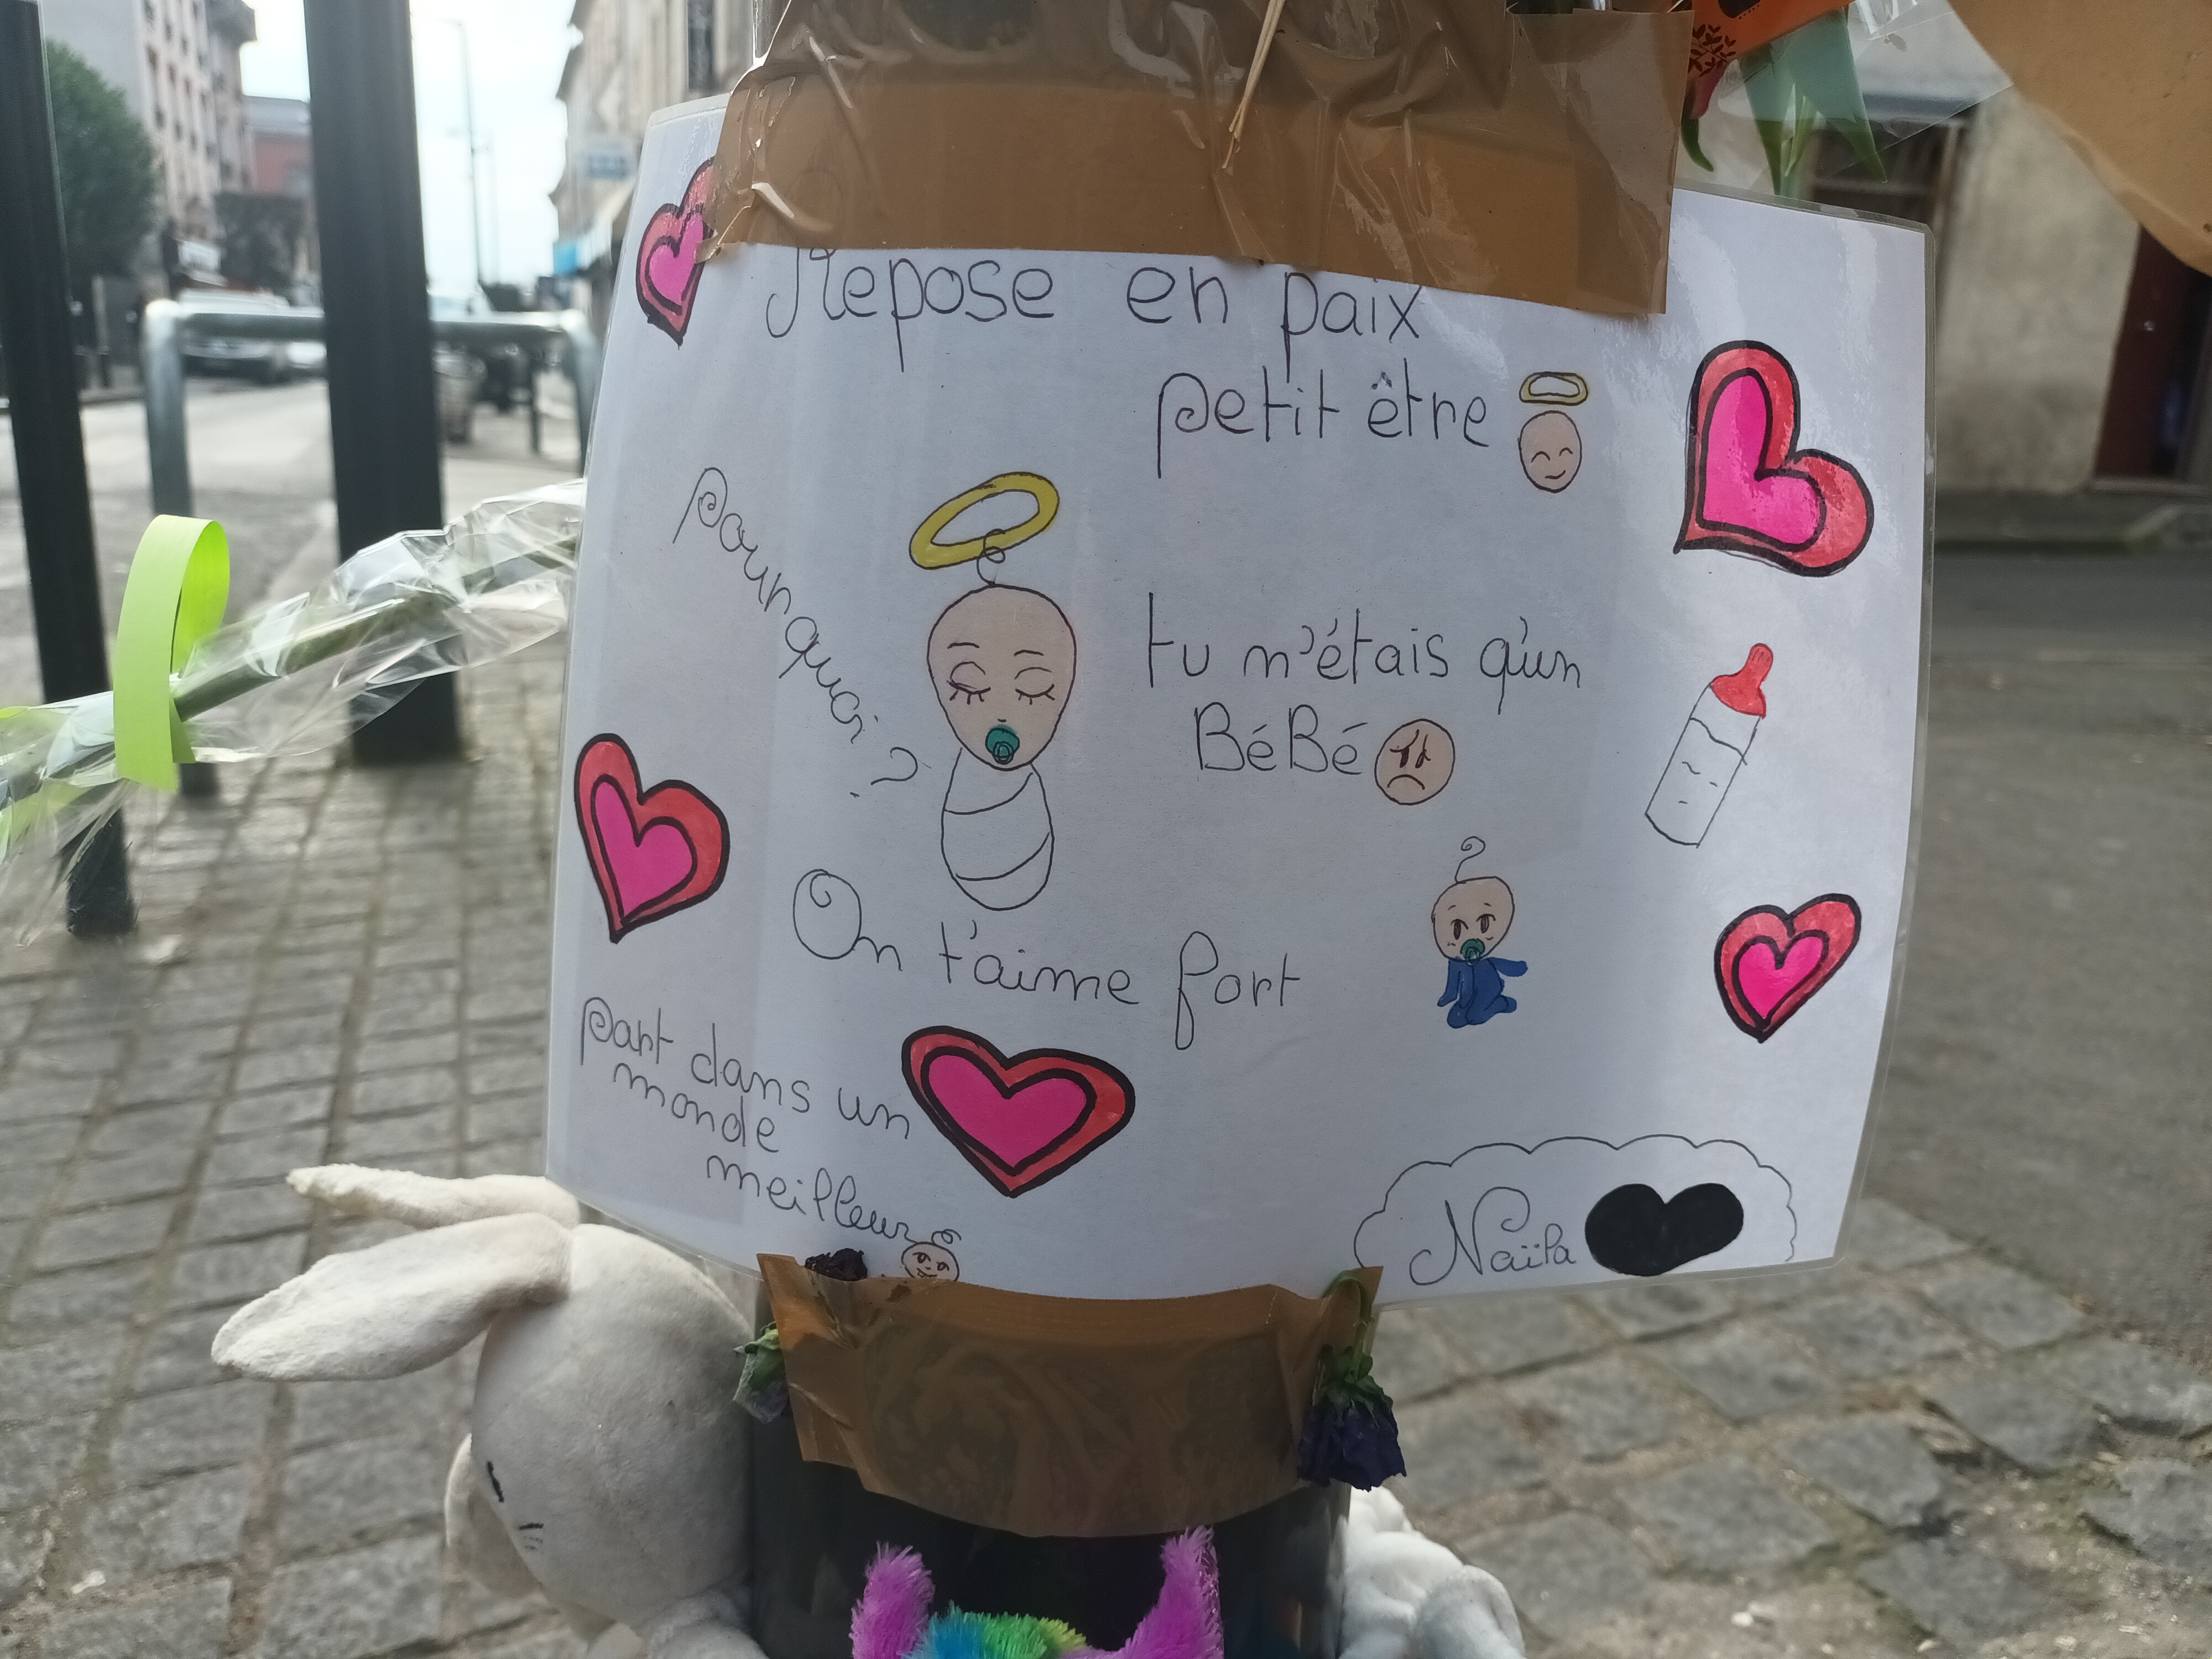 Repose en paix
petit être
Pourquoi ?
tu n'étais qu'un
BéBé
On t'aime fort
part dans un
monde
meilleur
Naïla